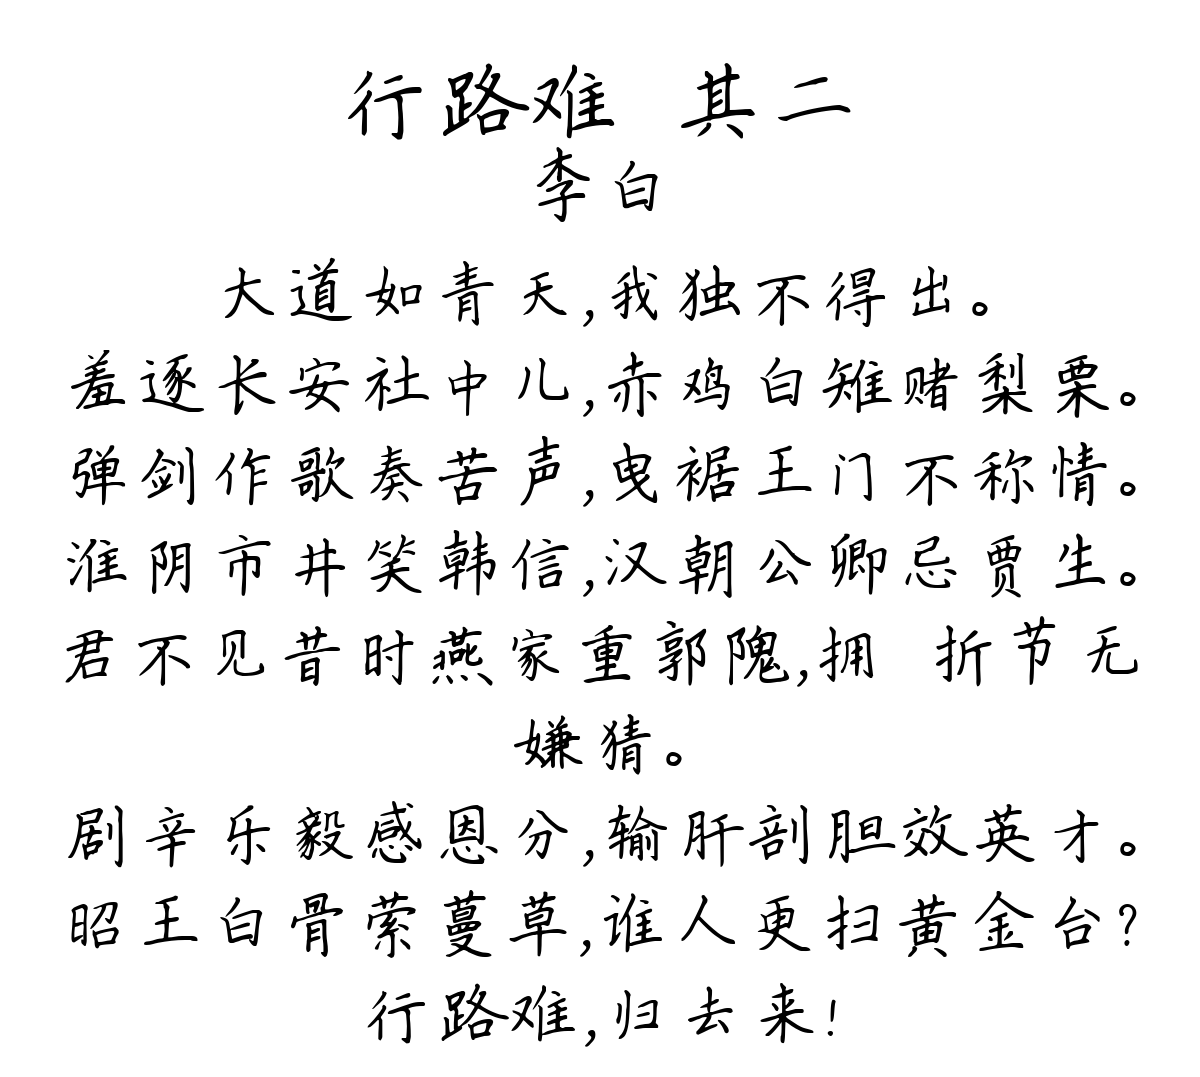 行路难 其二
李白
大道如青天,我独不得出。
羞逐长安社中儿,赤鸡白雉赌梨栗。
弹剑作歌奏苦声,曳裾王门不称情。
淮阴市井笑韩信,汉朝公卿忌贾生。
君不见昔时燕家重郭隗,拥 折节无
嫌猜。
剧辛乐毅感恩分,输肝剖胆效英才。
昭王白骨萦蔓草,谁人更扫黄金台?
行路难,归去来!